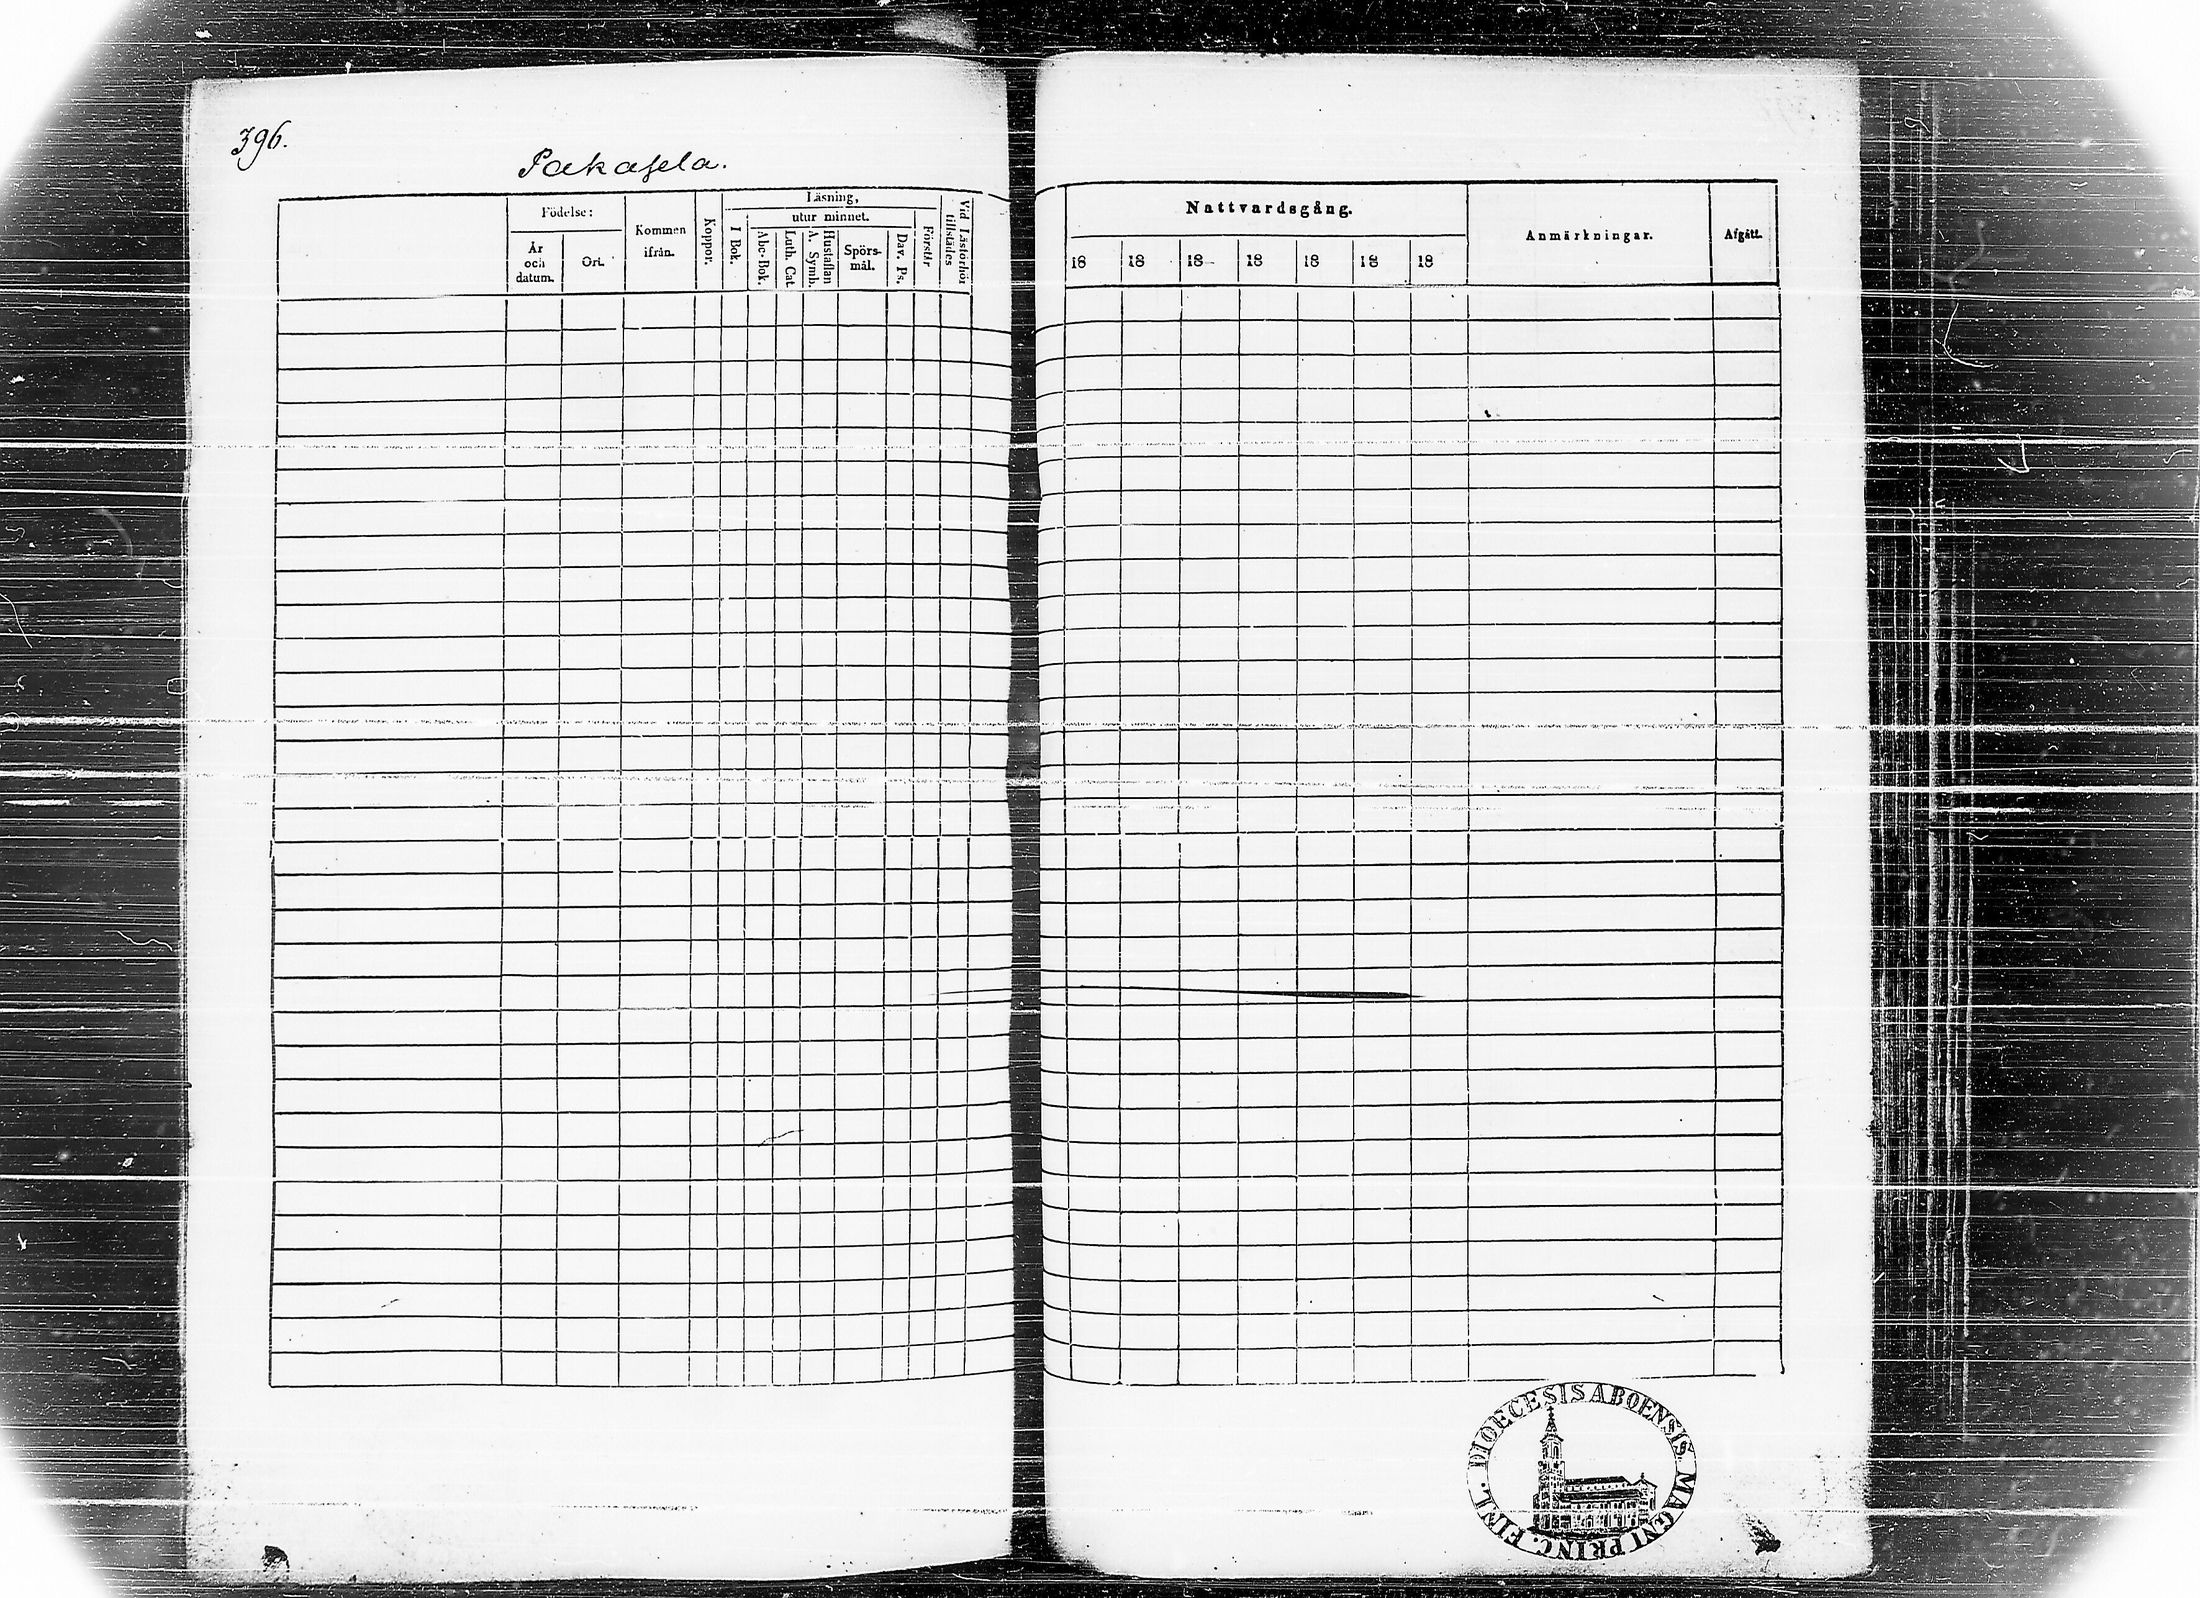 396.
Pakasela.
Födelse:
År och datum.
Ort.
Kommen ifrån.
Koppor.
Läsning,
I Bok.
utur minnet.
Abc-Bok.
Luth. Cat
Hustaflan A. Symb.
Spörsmål.
Dav. Ps.
Förstår
Vid Läsförhör tillstädes
Nattvardsgång.
18 18 18 18 18 18 18
Anmärkningar.
Afgått.
DIOECESIS ABOENSIS. MAGNI PRINC. FINL.